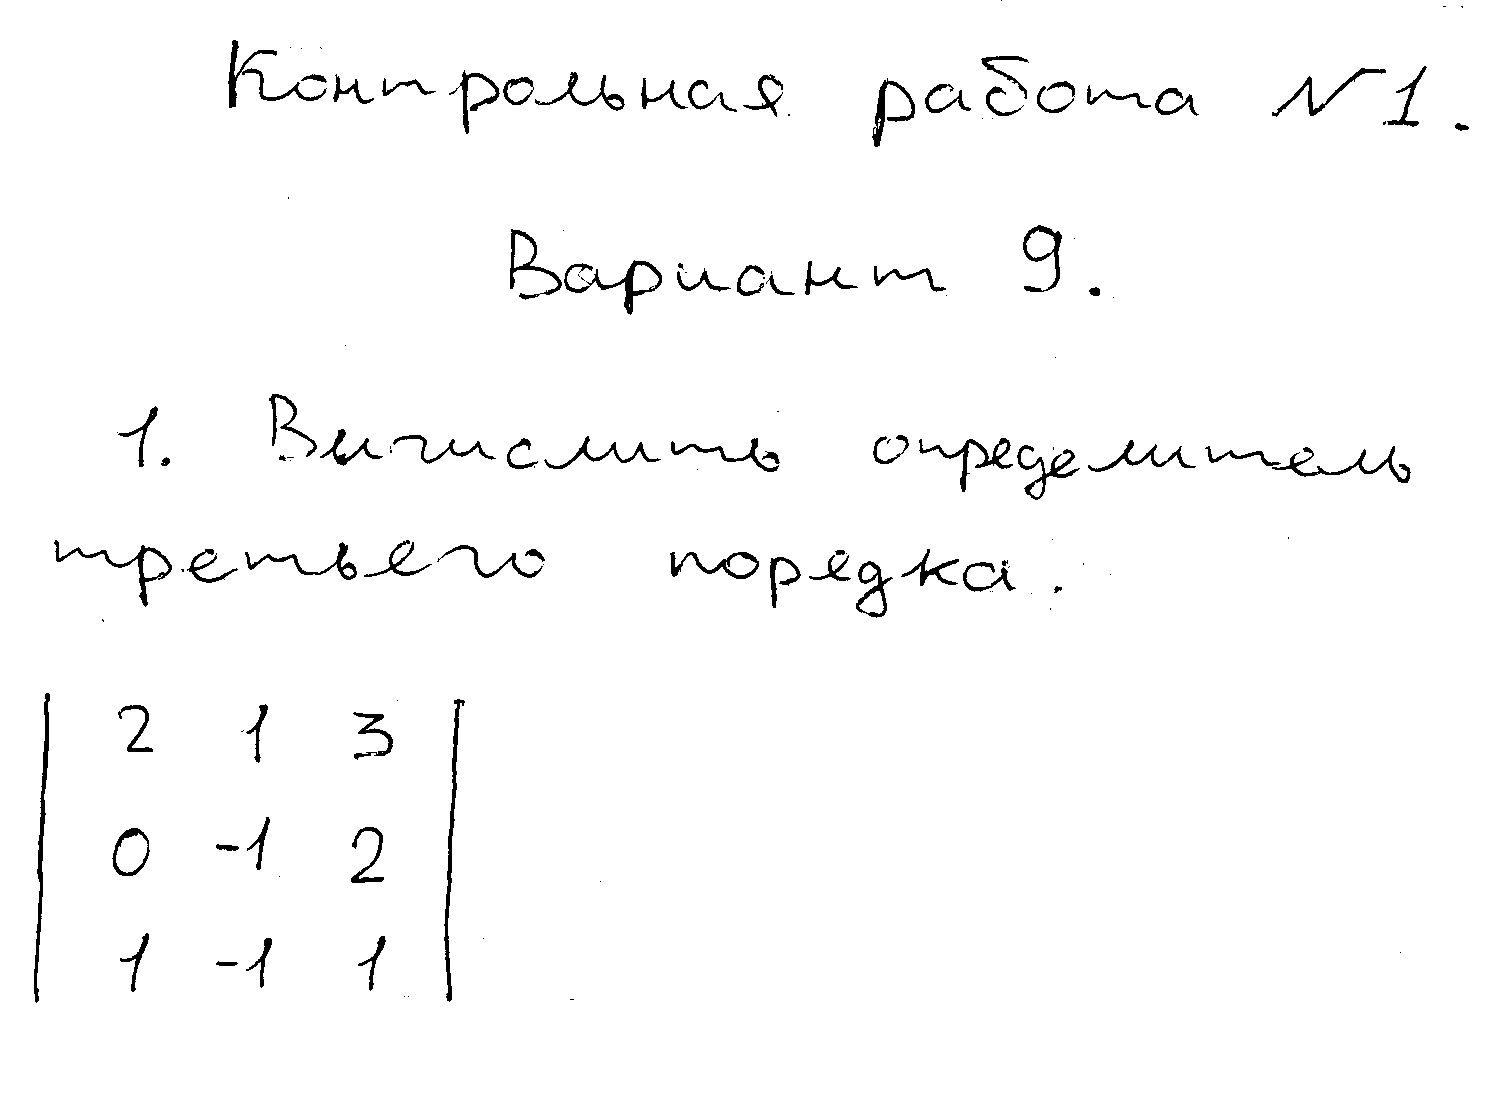 Контрольная работа №1.
Вариант 9.
1. Вычислить определитель
третьего порядка.
| 2 1 3 |
| 0 -1 2 |
| 1 -1 1 |